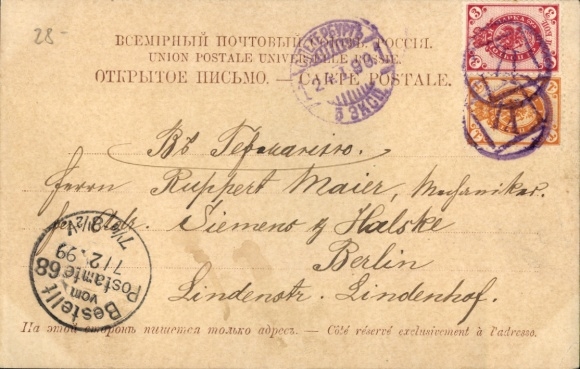 28-
ВСЕМІРНЫЙ ПОЧТОВЫЙ РОССІЯ.
UNION POSTALE UNIVERSELLE RUSSIE.
ОТКРЫТОЕ ПИСЬМО. — CARTE POSTALE.
3 ЭКСП.
3 3
Въ Германію.
Herrn Ruppert Maier, Mechaniker.
Siemens & Halske
Berlin
Lindenstr. Lindenhof.
Bestellt
vom
Postamte 68
7/2.99
7½-8½N
На этой сторонѣ пишется только адресъ. — Côté réservé exclusivement à l'adresse.